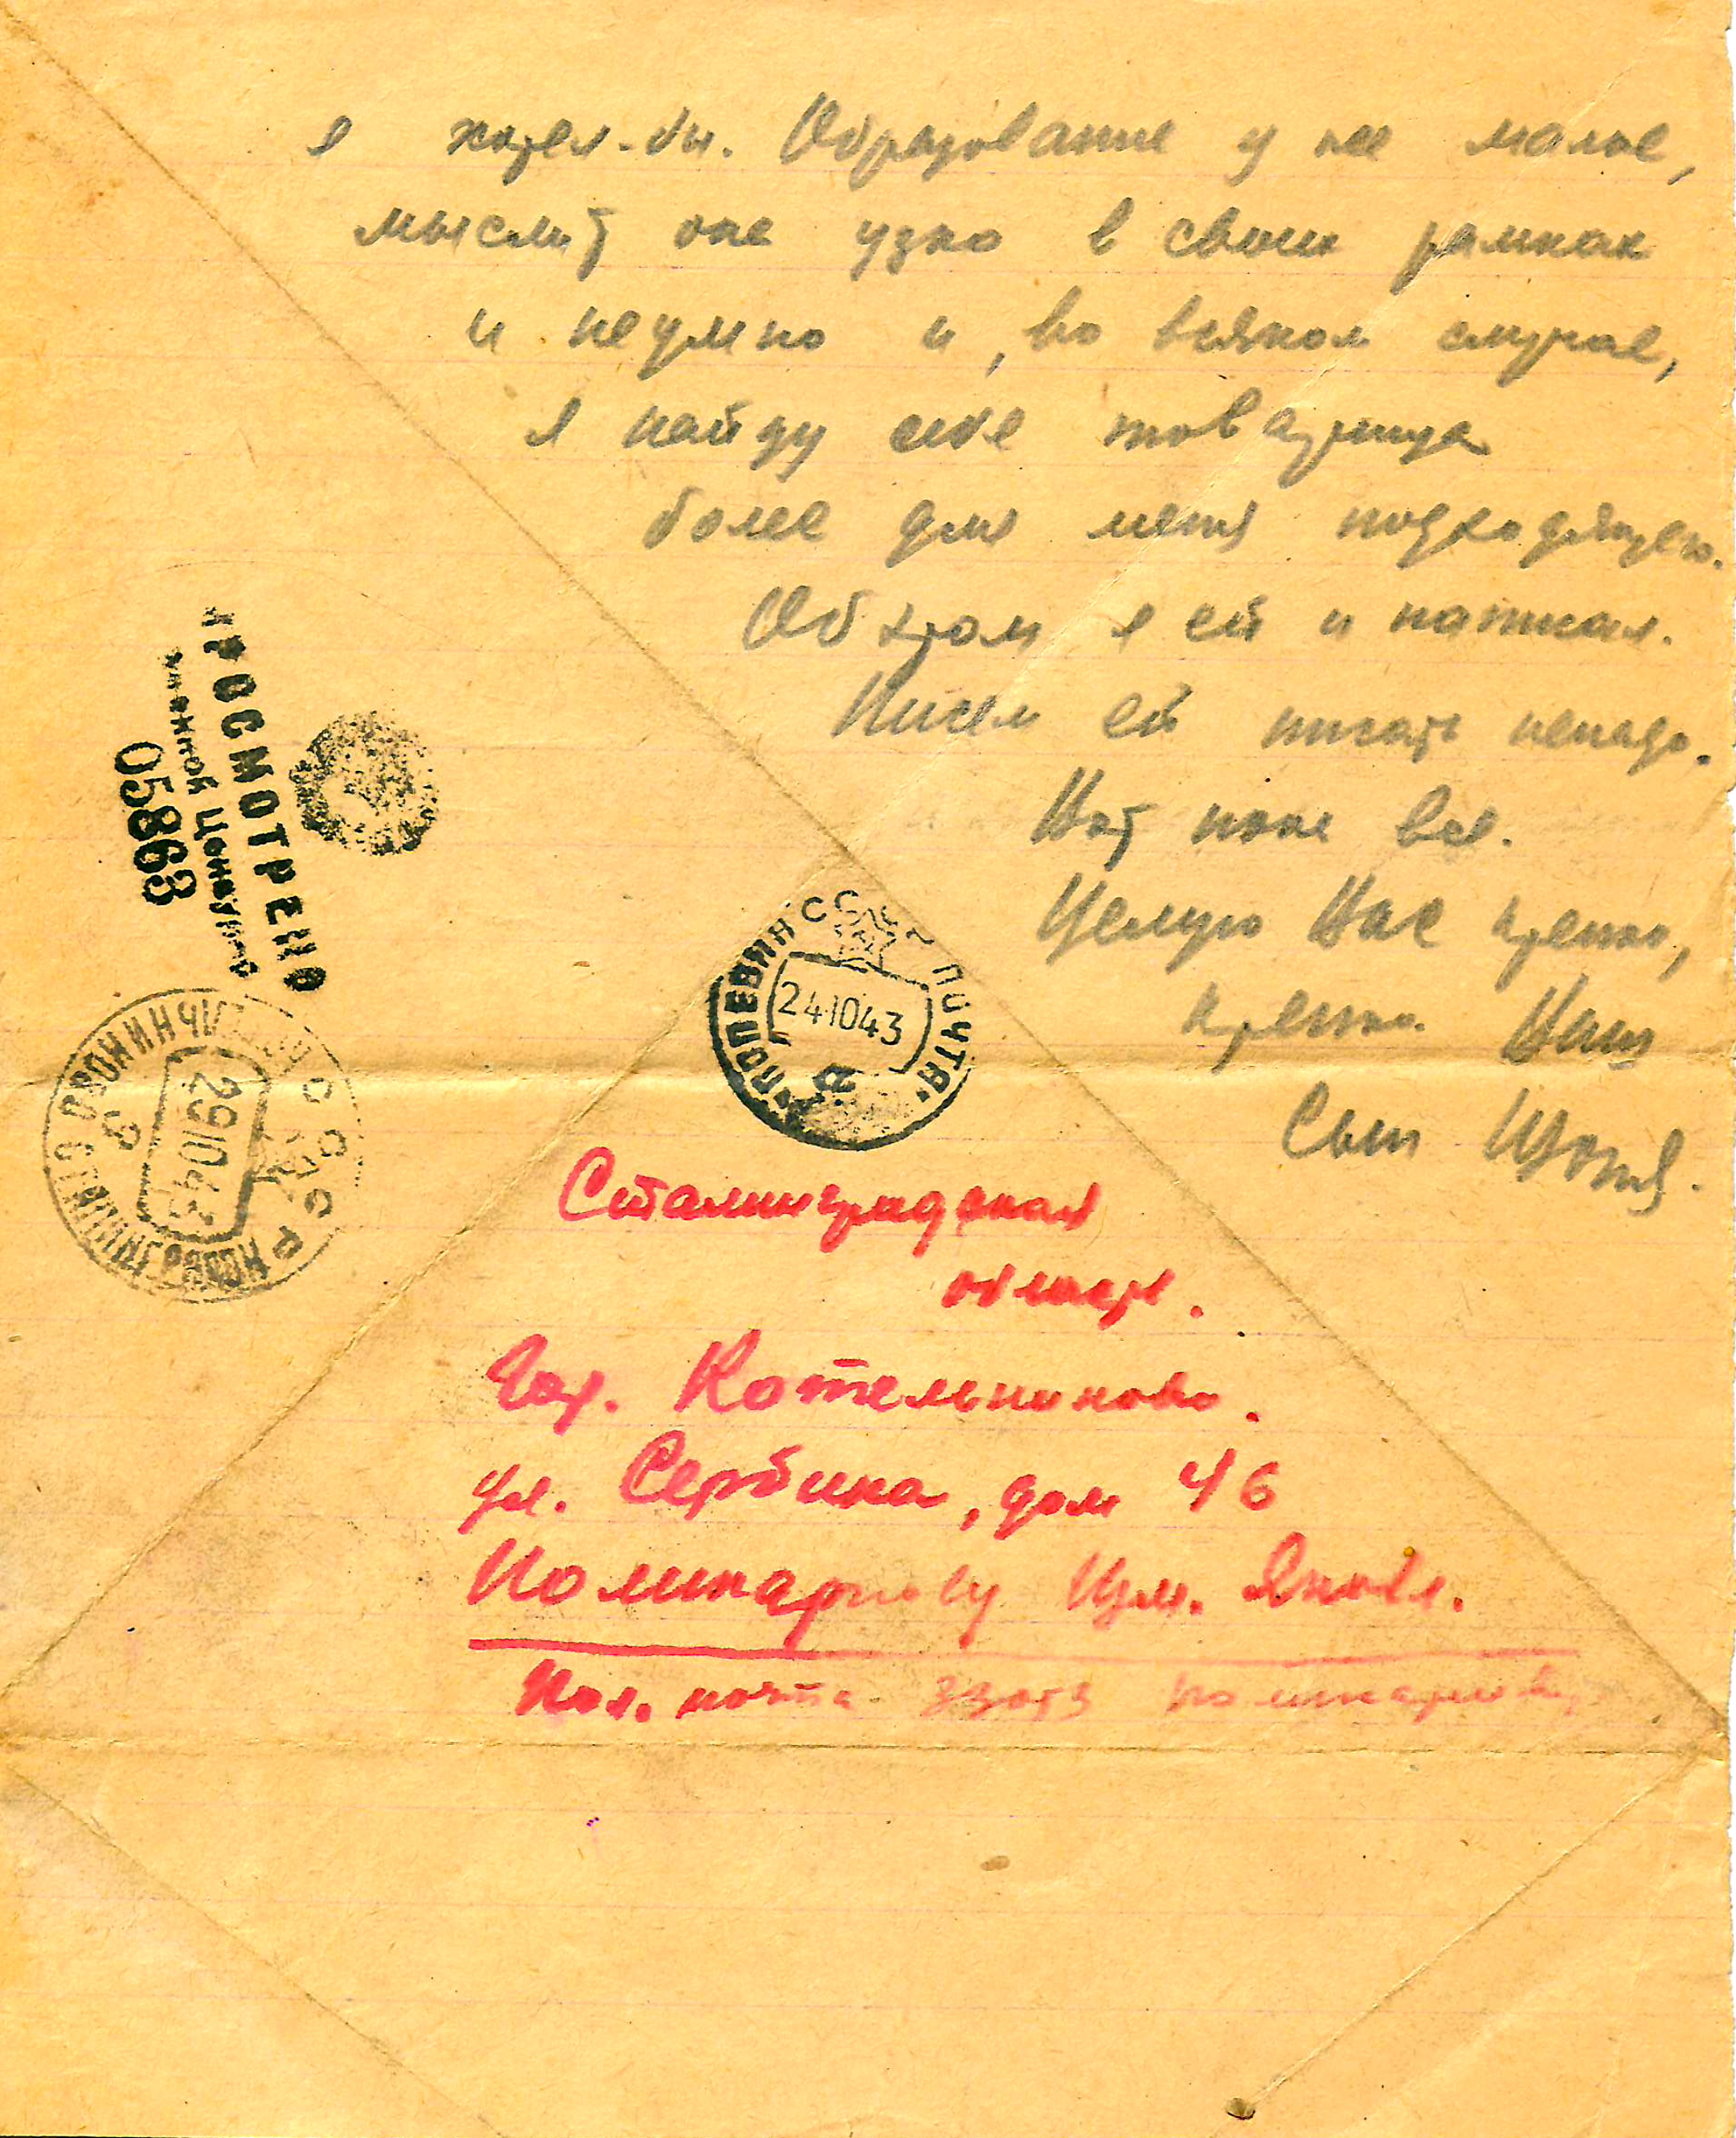 я хотел-бы. Образование у нее малое,
мыслит она узко в своих рамках
и неумно и, во всяком случае,
я найду себе товарища
более для меня подходящего.
Об этом я ей и написал.
Писем ей писать ненадо.
Вот пока все.
Целую Вас крепко,
крепко. Ваш
Сын
ПРОСМОТРЕНО
Военной Цензурой
05863
СССР ПОЛЕВАЯ ПОЧТА
24 10 43
СССР
29 10 43
Сталинградская
область.
Гор. Котельниково.
ул. Сербина, дом 46
Поликарпову Изм. Яковл.
Пол. почта Поликарпов